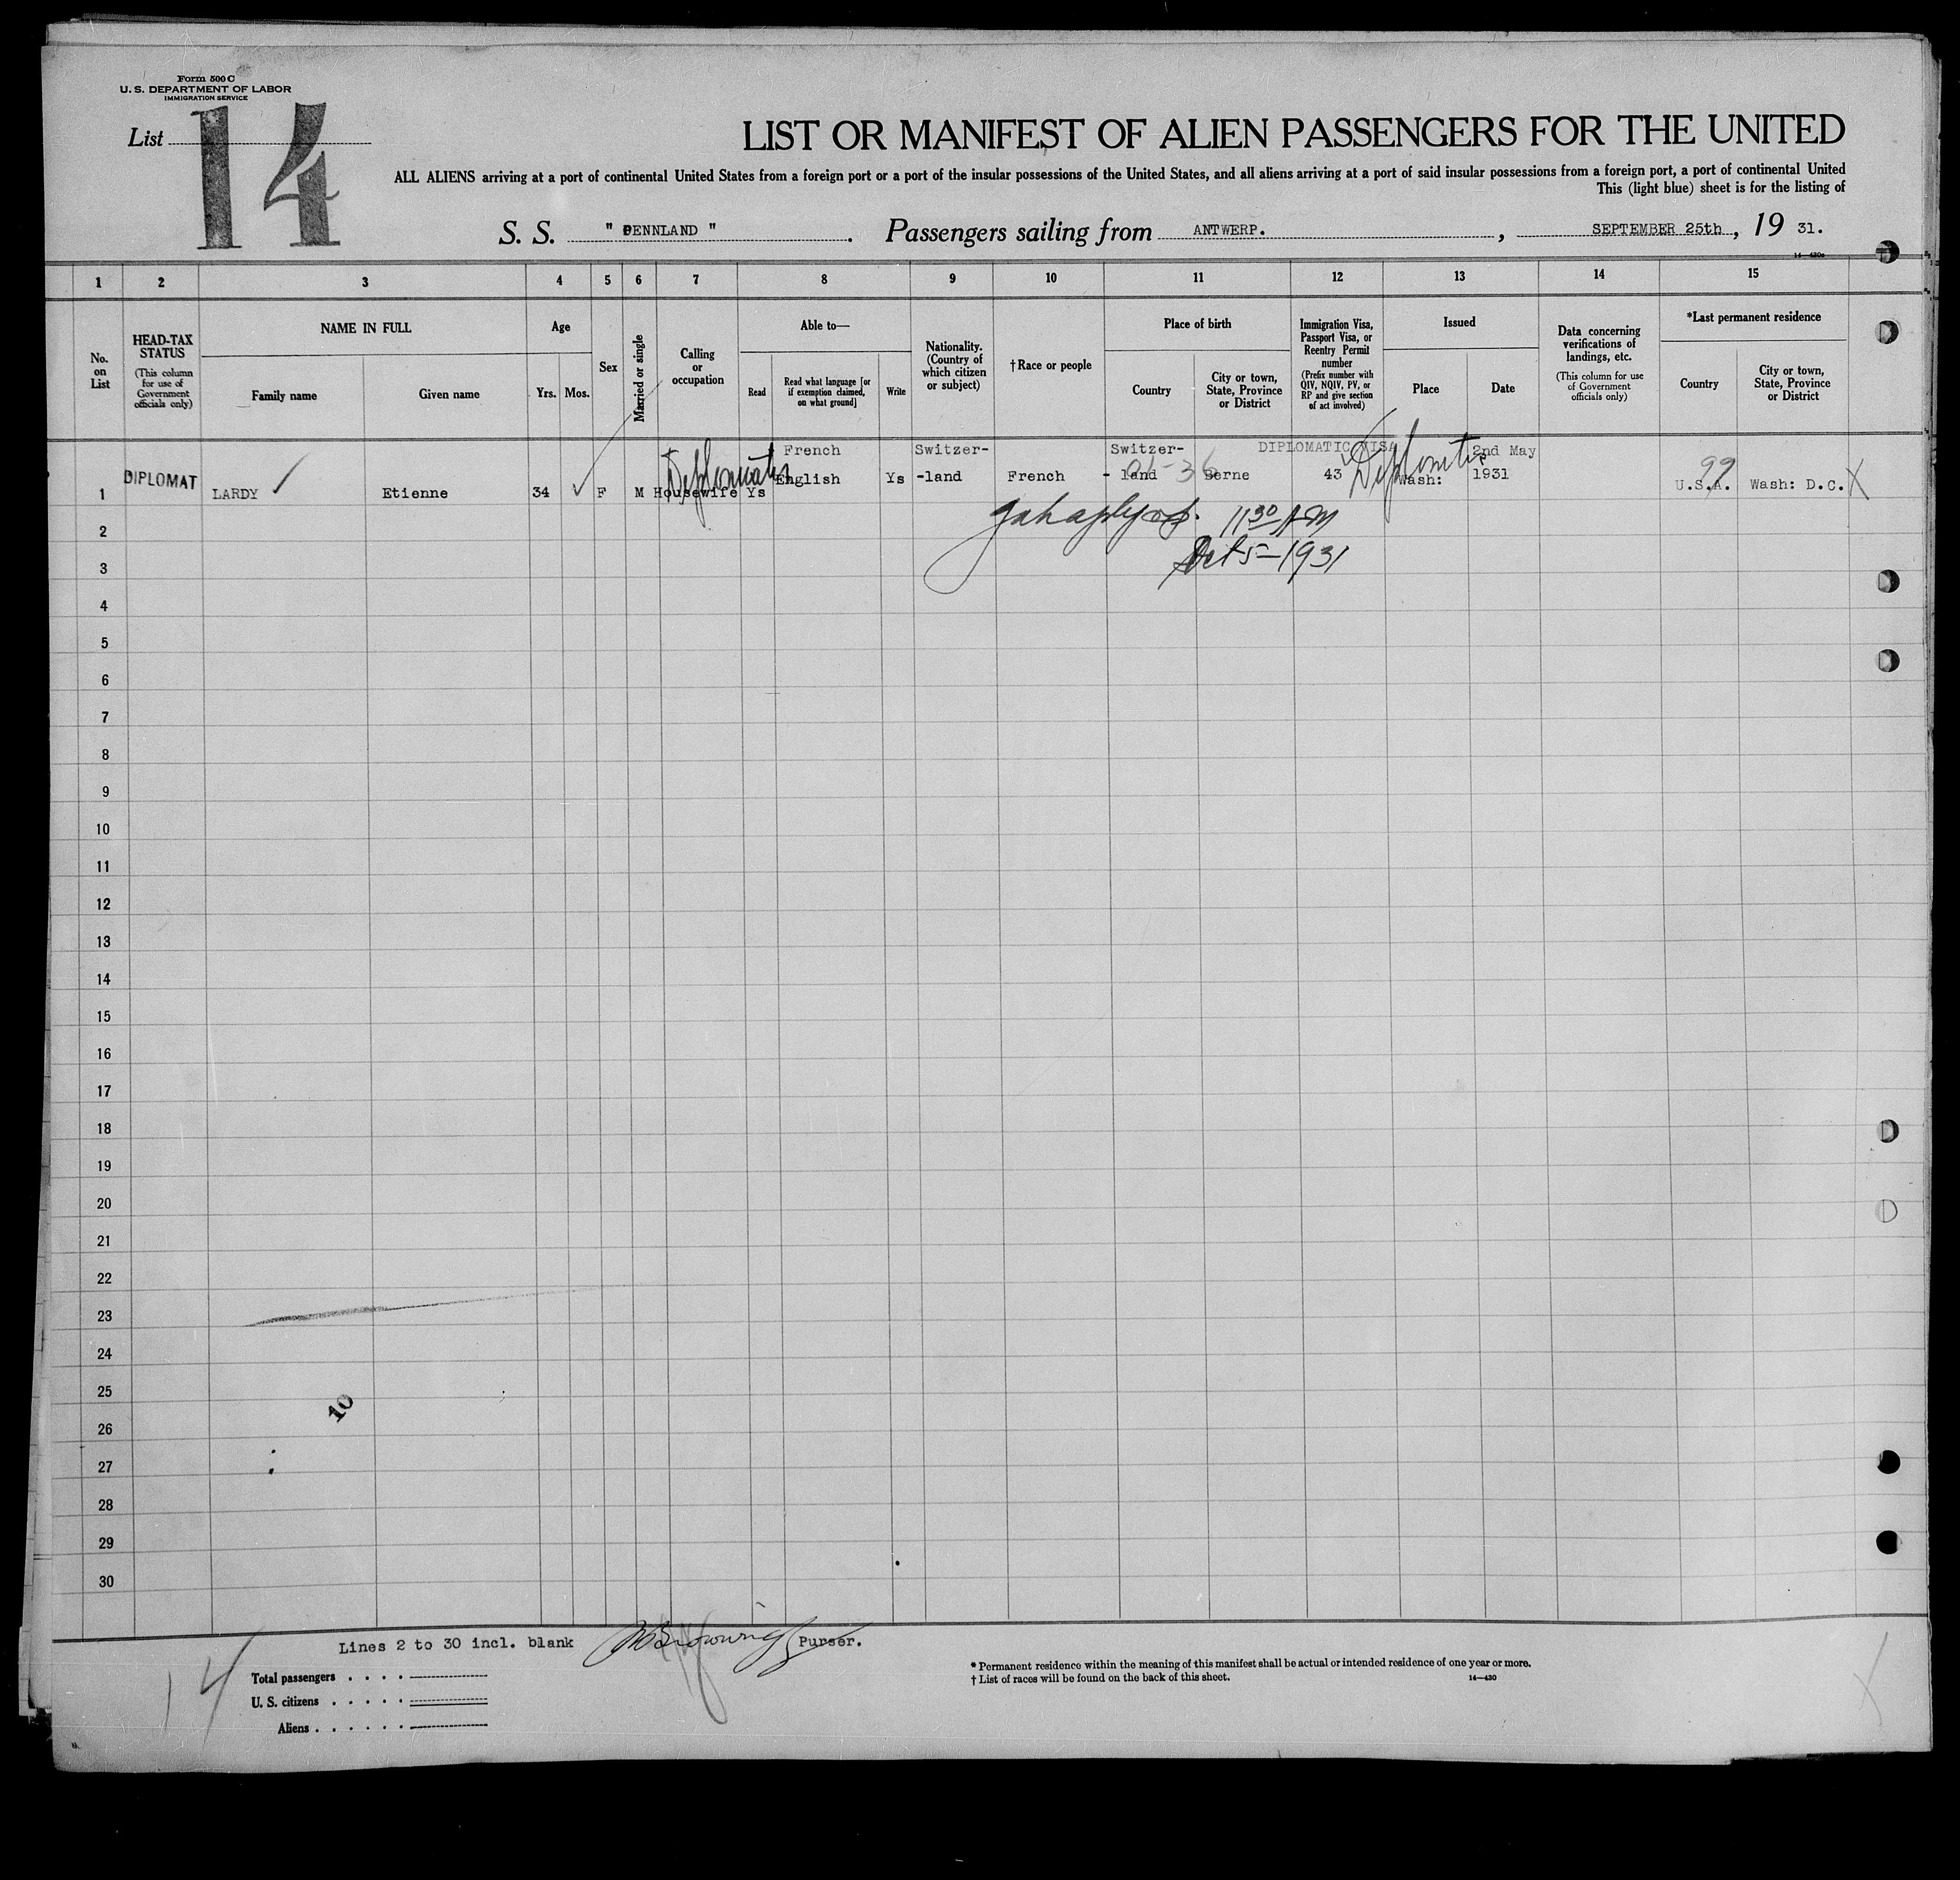 Form 500 C
U. S. DEPARTMENT OF LABOR
IMMIGRATION SERVICE
List 14
LIST OR MANIFEST OF ALIEN PASSENGERS FOR THE UNITED
ALL ALIENS arriving at a port of continental United States from a foreign port or a port of the insular possessions of the United States, and all aliens arriving at a port of said insular possessions from a foreign port, a port of continental United
This (light blue) sheet is for the listing of
S. S. " PENNLAND ". Passengers sailing from ANTWERP. , SEPTEMBER 25th , 19 31.
14—430c
1 2 3 4 5 6 7 8 9 10 11 12 13 14 15
No. on List
HEAD-TAX STATUS
(This column for use of Government officials only)
NAME IN FULL
Family name
Given name
Age
Yrs. Mos.
Sex
Married or single
Calling or occupation
Able to—
Read
Read what language [or if exemption claimed, on what ground]
Write
Nationality. (Country of which citizen or subject)
† Race or people
Place of birth
Country
City or town, State, Province or District
Immigration Visa, Passport Visa, or Reentry Permit number
(Prefix number with QIV, NQIV, PV, or RP and give section of act involved)
Issued
Place
Date
Data concerning verifications of landings, etc.
(This column for use of Government officials only)
*Last permanent residence
Country
City or town, State, Province or District
French Switzer- Switzer- DIPLOMATIC VISA 2nd May
DIPLOMAT Diplomatic English Ys -land French - land Berne 43 Diplomatic Wash: 1931 99
1 LARDY Etienne 34 F M Housewife Ys U.S.A. Wash: D.C. X
11 30 AM
2
Oct 5 - 1931
3
4
5
6
7
8
9
10
11
12
13
14
15
16
17
18
19
20
21
22
23
24
25
10
26
27
28
29
30
Lines 2 to 30 incl. blank Browning Purser.
14
Total passengers . . . .
U. S. citizens . . . . .
Aliens . . . . . .
* Permanent residence within the meaning of this manifest shall be actual or intended residence of one year or more.
† List of races will be found on the back of this sheet. 14—430
X